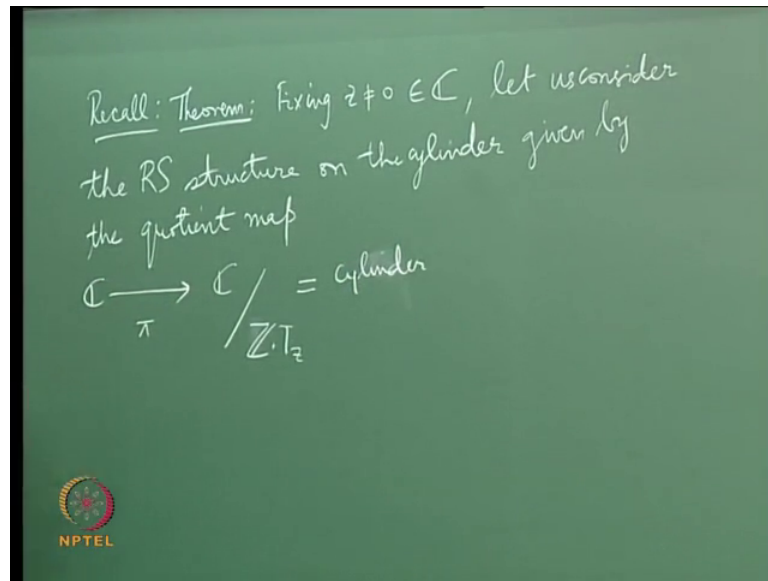 Recall: Theorem: Fixing z ≠ 0 ∈ ℂ, let us consider
the RS structure on the cylinder given by
the quotient map
ℂ ⟶ ℂ / ℤ·T_z = cylinder
π
NPTEL